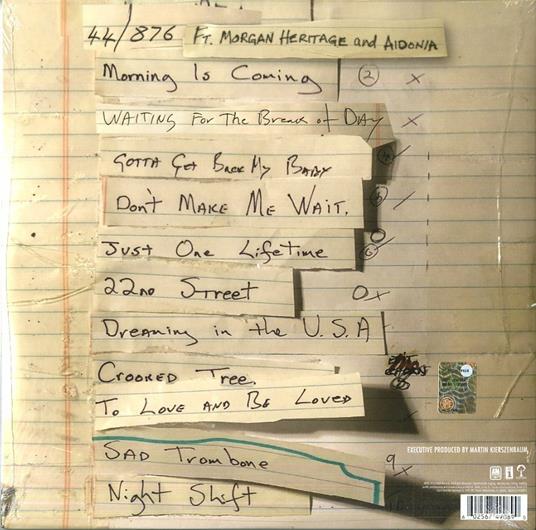 44/876 FT. MORGAN HERITAGE and AIDONIA
Morning Is Coming 2 x
WAITING For The Break of DAY x
GOTTA Get Back My BABY
Don't MAKE ME WAIT.
Just One Lifetime 6
22nd Street 0x
Dreaming in the U.S.A
Crooked Tree.
To Love AND Be Loved
SAD Trombone 9 x
Night Shift
EXECUTIVE PRODUCED BY MARTIN KIERSZENBAUM